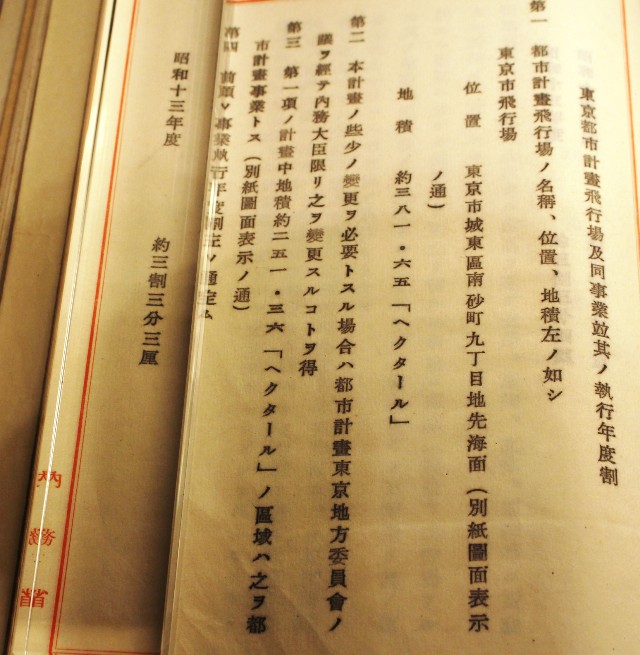 東京都市計畫飛行場及同事業竝其ノ執行年度割
第一 都市計畫飛行場ノ名稱、位置、地積左ノ如シ
東京市飛行場
位置 東京市城東區南砂町九丁目地先海面(別紙圖面表示
ノ通)
地積 約三八一・六五「ヘクタール」
第二 本計畫ノ些少ノ變更ヲ必要トスル場合ハ都市計畫東京地方委員會ノ
議ヲ經テ內務大臣限リ之ヲ變更スルコトヲ得
第三 第一項ノ計畫中地積約二五一・三六「ヘクタール」ノ區域ハ之ヲ都
市計畫事業トス(別紙圖面表示ノ通)
第四 前項ノ事業執行年度割左ノ通定ム
昭和十三年度 約三割三分三厘
內務省